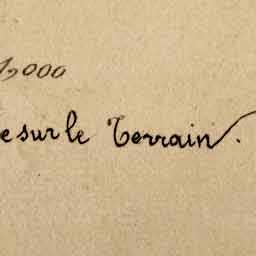 1,000
e sur le Terrain.